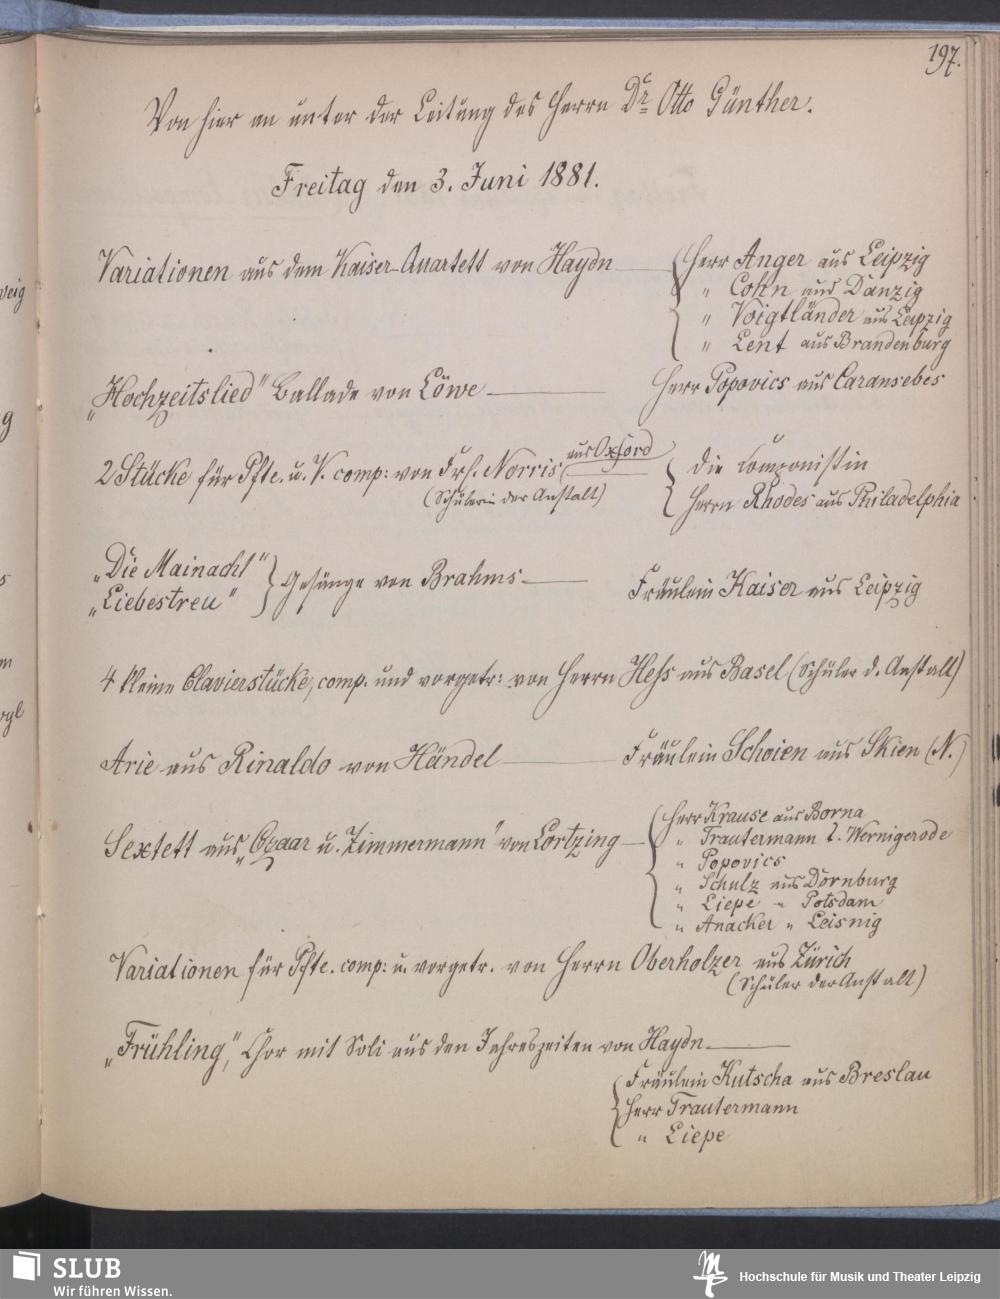 197.
Von hier an unter der Leitung des Herrn Dr. Otto Günther.
Freitag den 3. Juni 1881.
Variationen aus dem Kaiser-Quartett von Haydn
Herr Anger aus Leipzig
" Cohn aus Danzig
" Voigtländer aus Leipzig
" Lent aus Brandenburg
„Hochzeitslied" Ballade von Löwe
Herr Popovics aus Caransebes
2 Stücke für Pfte. u. V. comp: von Frl. Norris aus Oxford
(Schülerin der Anstalt)
die Componistin
Herrn Rhodes aus Philadelphia
„Die Mainacht"
„Liebestreu"
Gesänge von Brahms
Fräulein Kaiser aus Leipzig
4 kleine Clavierstücke, comp. und vorgetr: von Herrn Hess aus Basel (Schüler d. Anstalt)
Arie aus Rinaldo von Händel
Fräulein Schoien aus Skien (N.)
Sextett aus „Czaar u. Zimmermann" von Lortzing
Herr Krause aus Borna
" Trautermann a. Wernigerode
" Popovics
" Schulz aus Dornburg
" Liepe " Potsdam
" Anacker " Leisnig
Variationen für Pfte. comp: u. vorgetr. von Herrn Oberholzer aus Zürich
(Schüler der Anstalt)
„Frühling," Chor mit Soli aus den Jahreszeiten von Haydn
Fräulein Kutscha aus Breslau
Herr Trautermann
" Liepe
SLUB
Wir führen Wissen.
Hochschule für Musik und Theater Leipzig